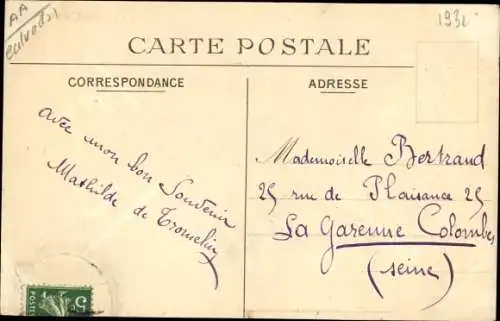 AA
Calvados
1931
CARTE POSTALE
CORRESPONDANCE
ADRESSE
avec mon bon Souvenir
Mathilde de Tromelin
Mademoiselle Bertrand
25 rue de Plaisance 25
La Garenne Colombes
(Seine)
5c
POSTES